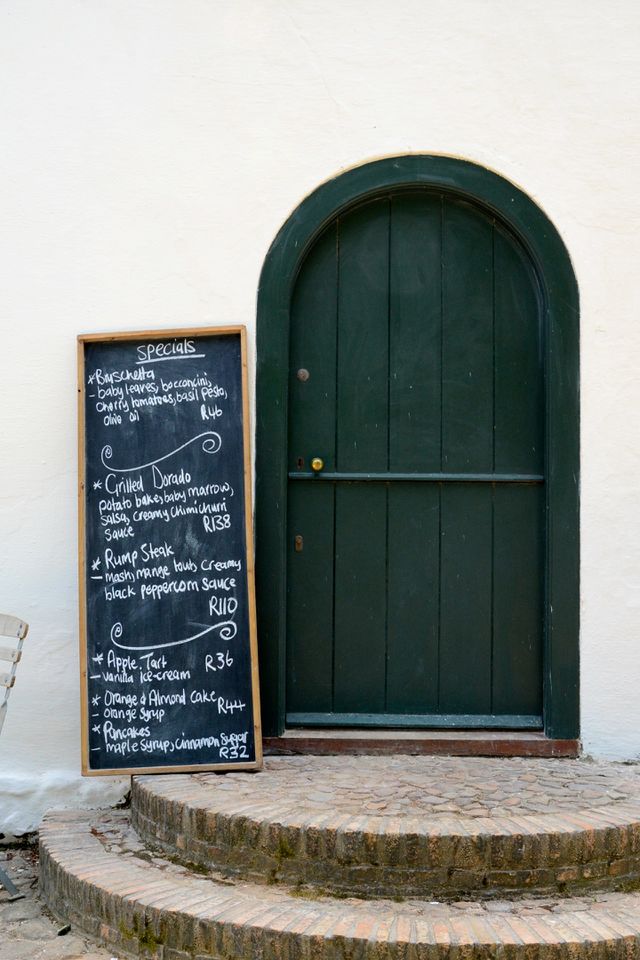 specials
* Bruschetta
- baby leaves, bocconcini,
cherry tomatoes, basil pesto,
olive oil R46
* Grilled Dorado
potato bake, baby marrow,
salsa, creamy chimichurri
sauce R138
* Rump Steak
- mash, mange tout, creamy
black peppercorn sauce
R110
* Apple Tart R36
- vanilla ice-cream
* Orange & Almond Cake
- orange syrup R44
* Pancakes
- maple syrup, cinnamon sugar
R32